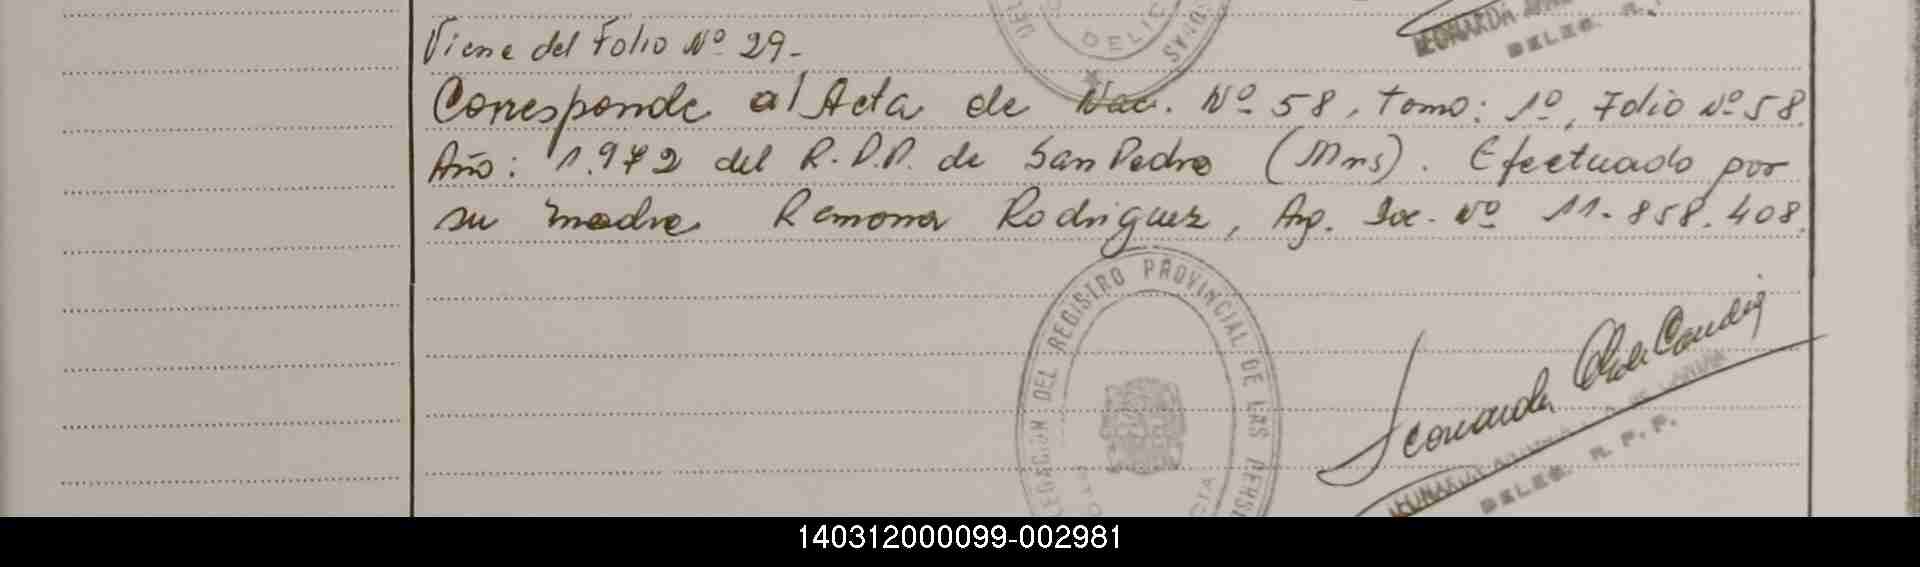 Viene del Folio Nº 29-
Corresponde al Acta de Nac. Nº 58, Tomo: 1º, Folio Nº 58.
Año: 1.972 del R.P.P. de San Pedro (Mns). Efectuado por
su madre Ramona Rodriguez, Arg. Doc. Nº 11.858.408.
DELEGACION DEL REGISTRO PROVINCIAL DE LAS PERSONAS
Leonarda
DELEG. R. P. P.
140312000099-002981